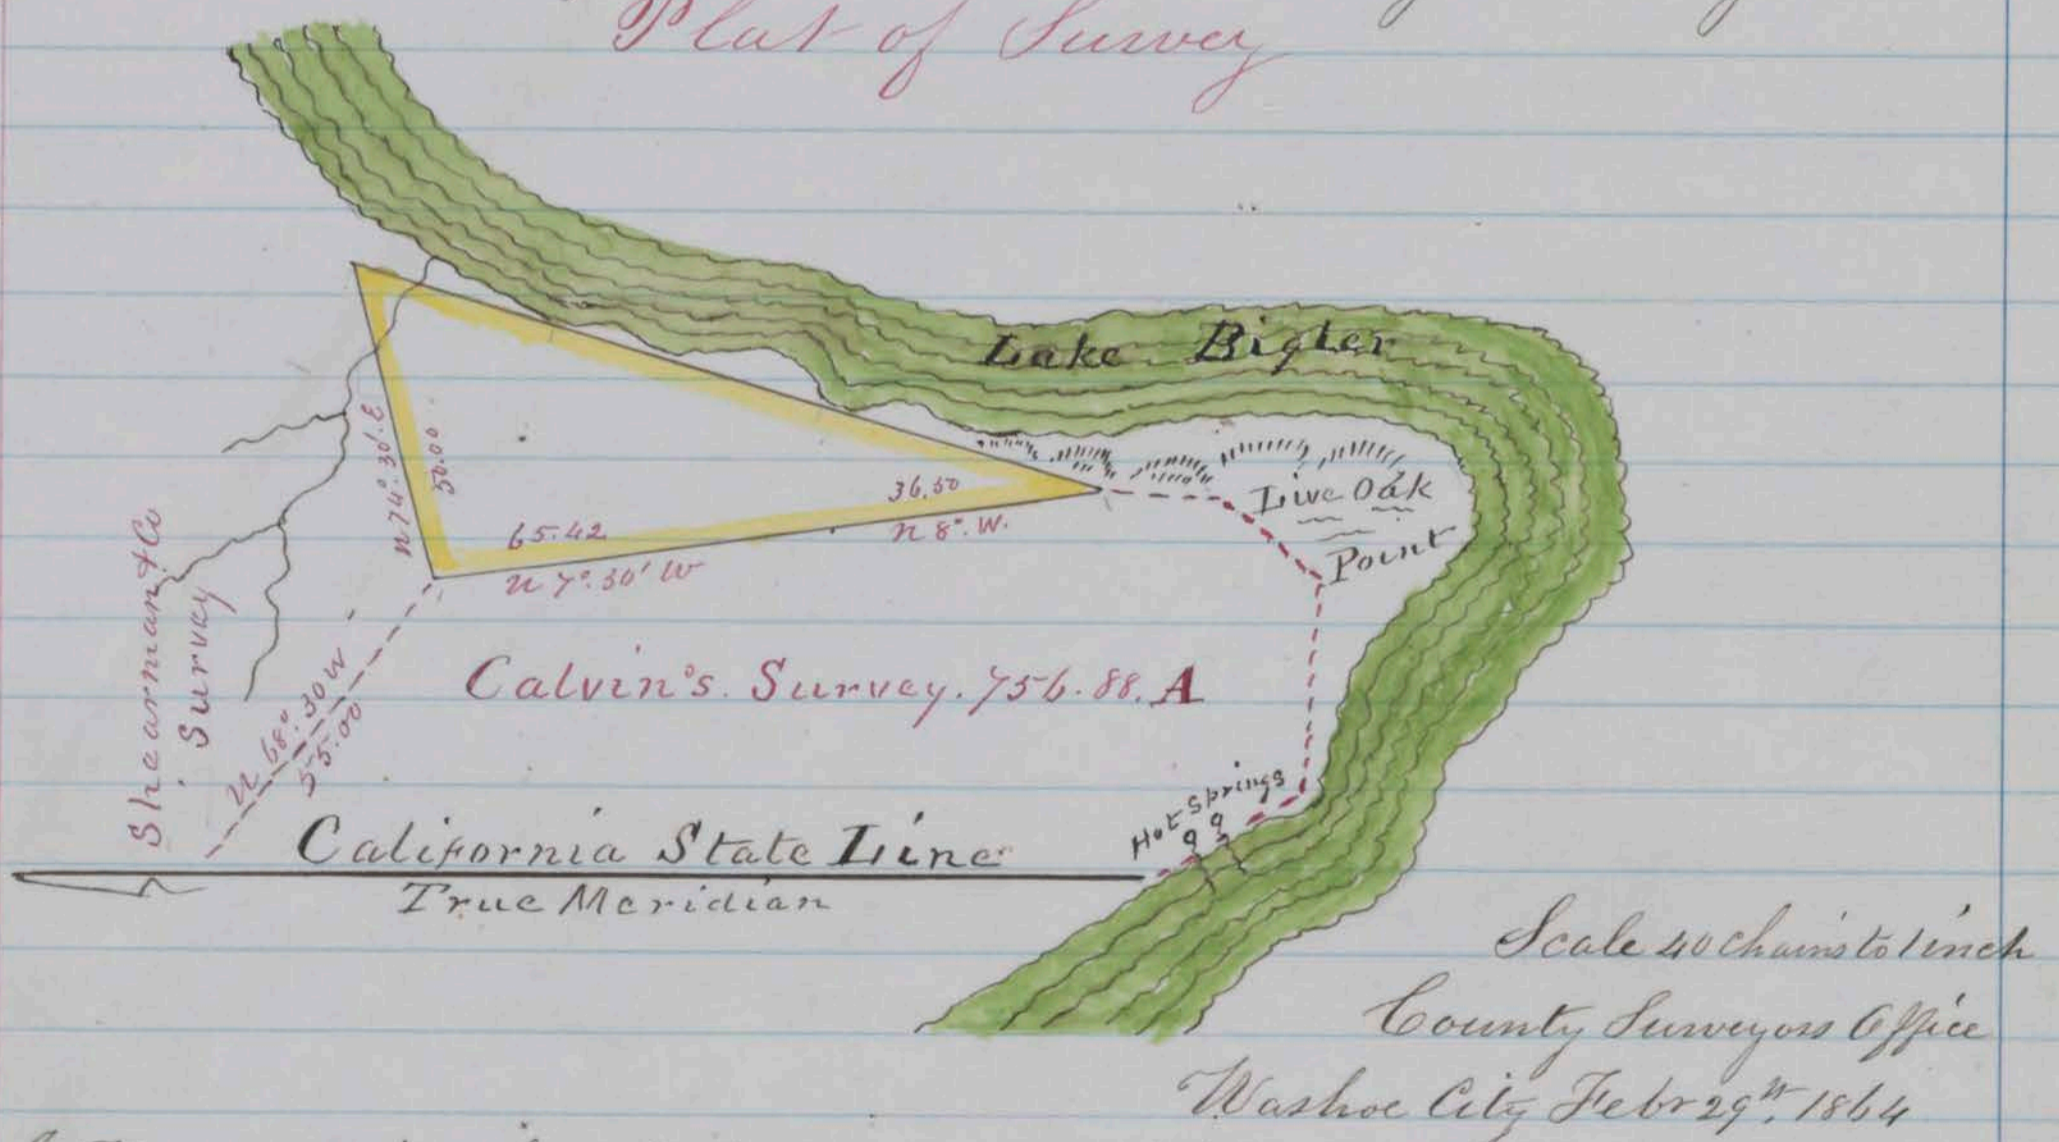 Plat of Survey
Lake Bigler
Live Oak
Point
N 74°. 30' E
50.00
36.50
65.42
N 8°. W.
N 7°. 30' W
Shearman & Co
Survey
N 68°. 30 W
55.00
Calvin's. Survey. 756.88. A
Hot Springs
California State Line
True Meridian
Scale 40 chains to 1 inch
County Surveyors Office
Washoe City Febr 29th. 1864